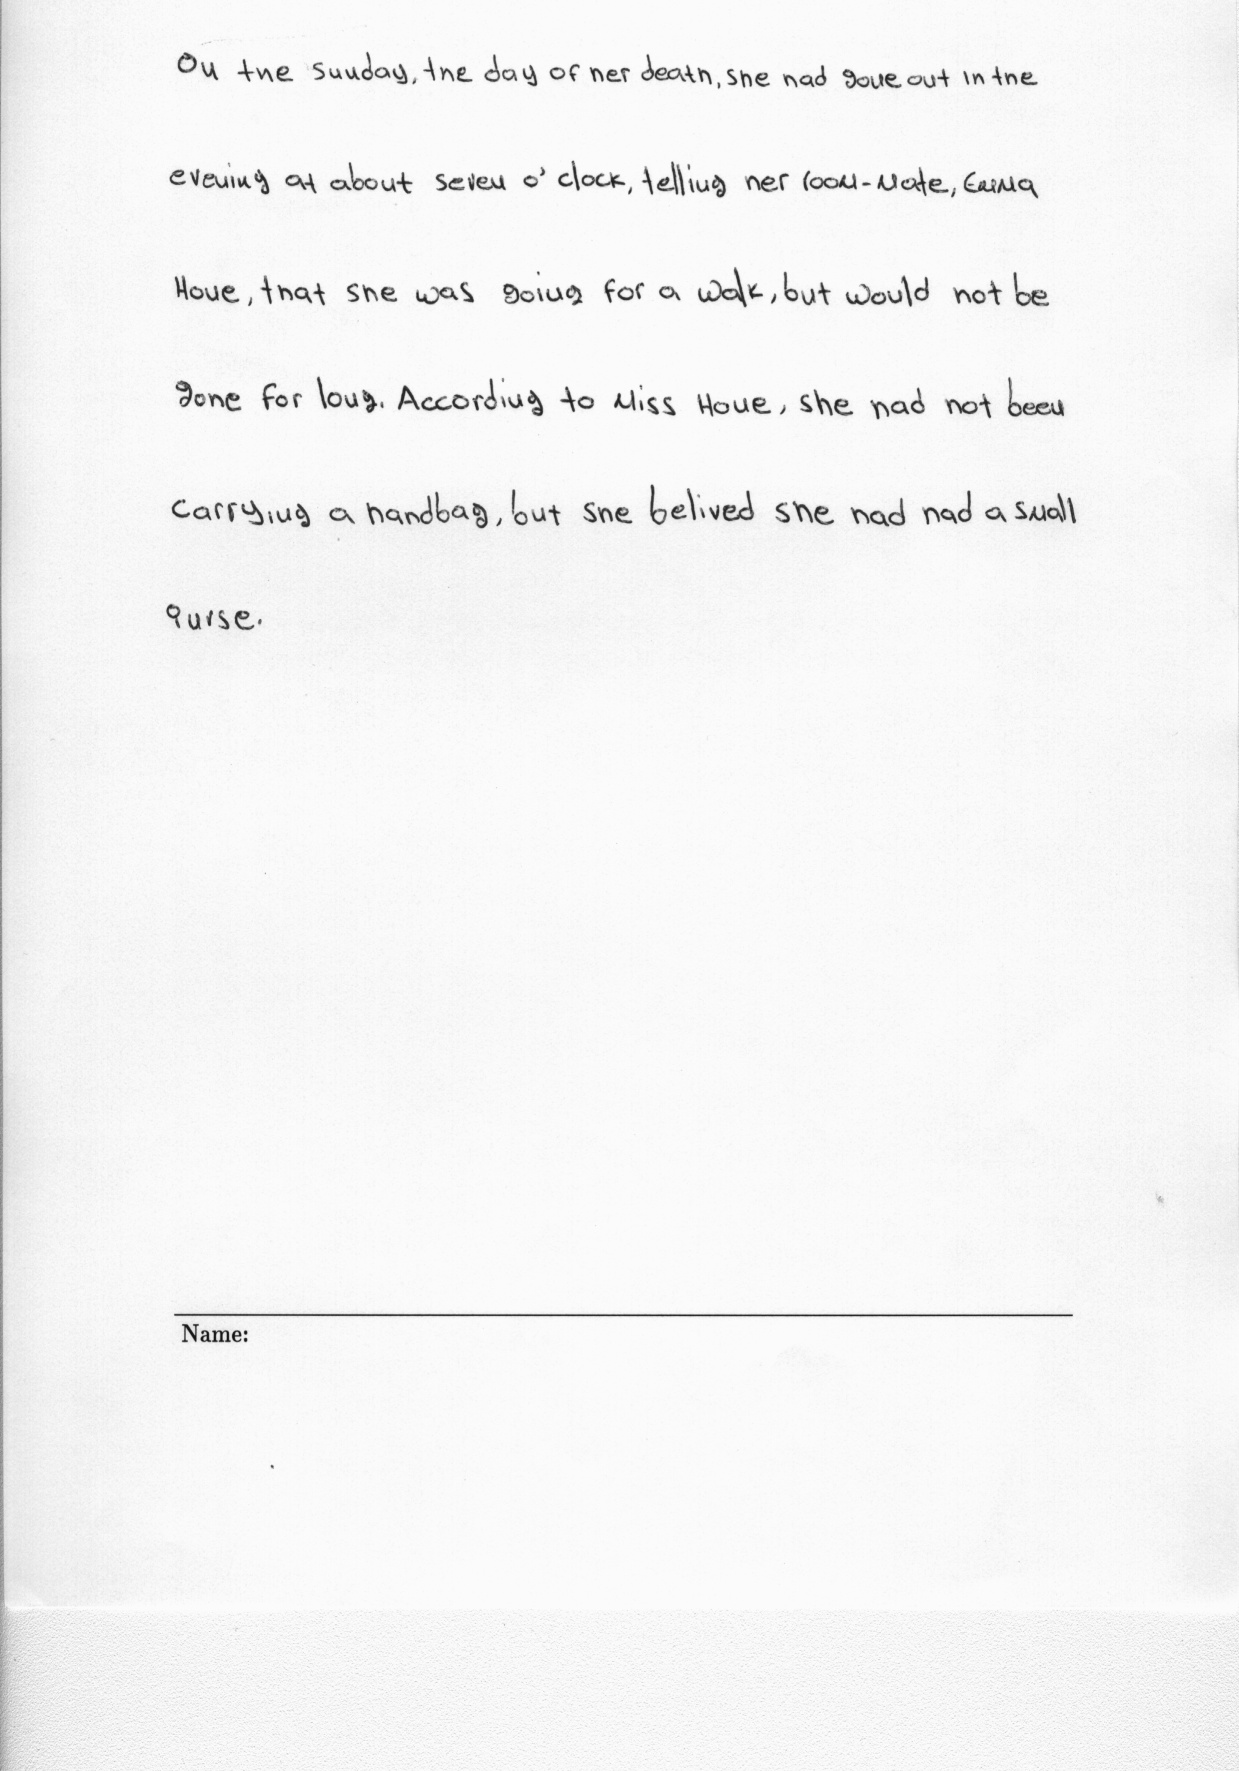 On the Sunday, the day of her death, she had gone out in the
evening at about seven o'clock, telling her room-mate, Emma
Hove, that she was going for a walk, but would not be
gone for long. According to Miss Hove, she had not been
carrying a handbag, but she belived she had had a small
purse.
Name: